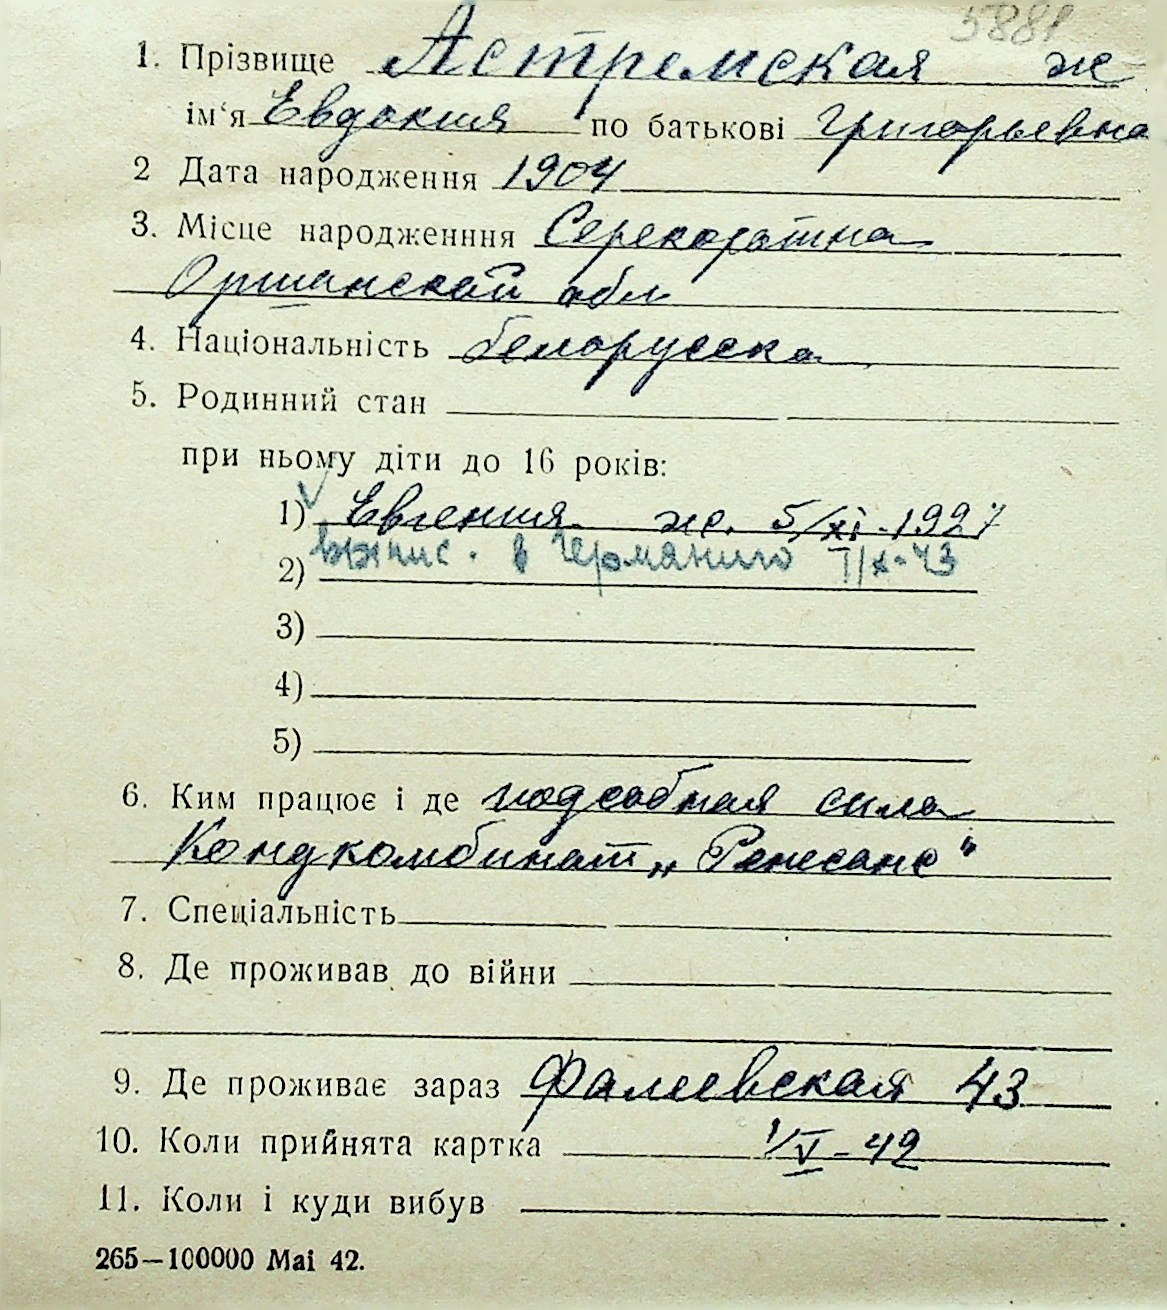 5881
1. Прізвище Астремская ж
ім'я Евдокия по батькові Григорьевна
2 Дата народження 1904
3. Місце народженння
Оршанской обл
4. Національність белорусска
5. Родинний стан
при ньому діти до 16 років:
1) Евгения ж. 5/XI-1927
2) в Германию I/X-43
3)
4)
5)
6. Ким працює і де подсобная сила
Кондкомбинат „Ренесанс"
7. Спеціальність
8. Де проживав до війни
9. Де проживає зараз Фалеевская 43
10. Коли прийнята картка 1/V-42
11. Коли і куди вибув
265—100000 Mai 42.